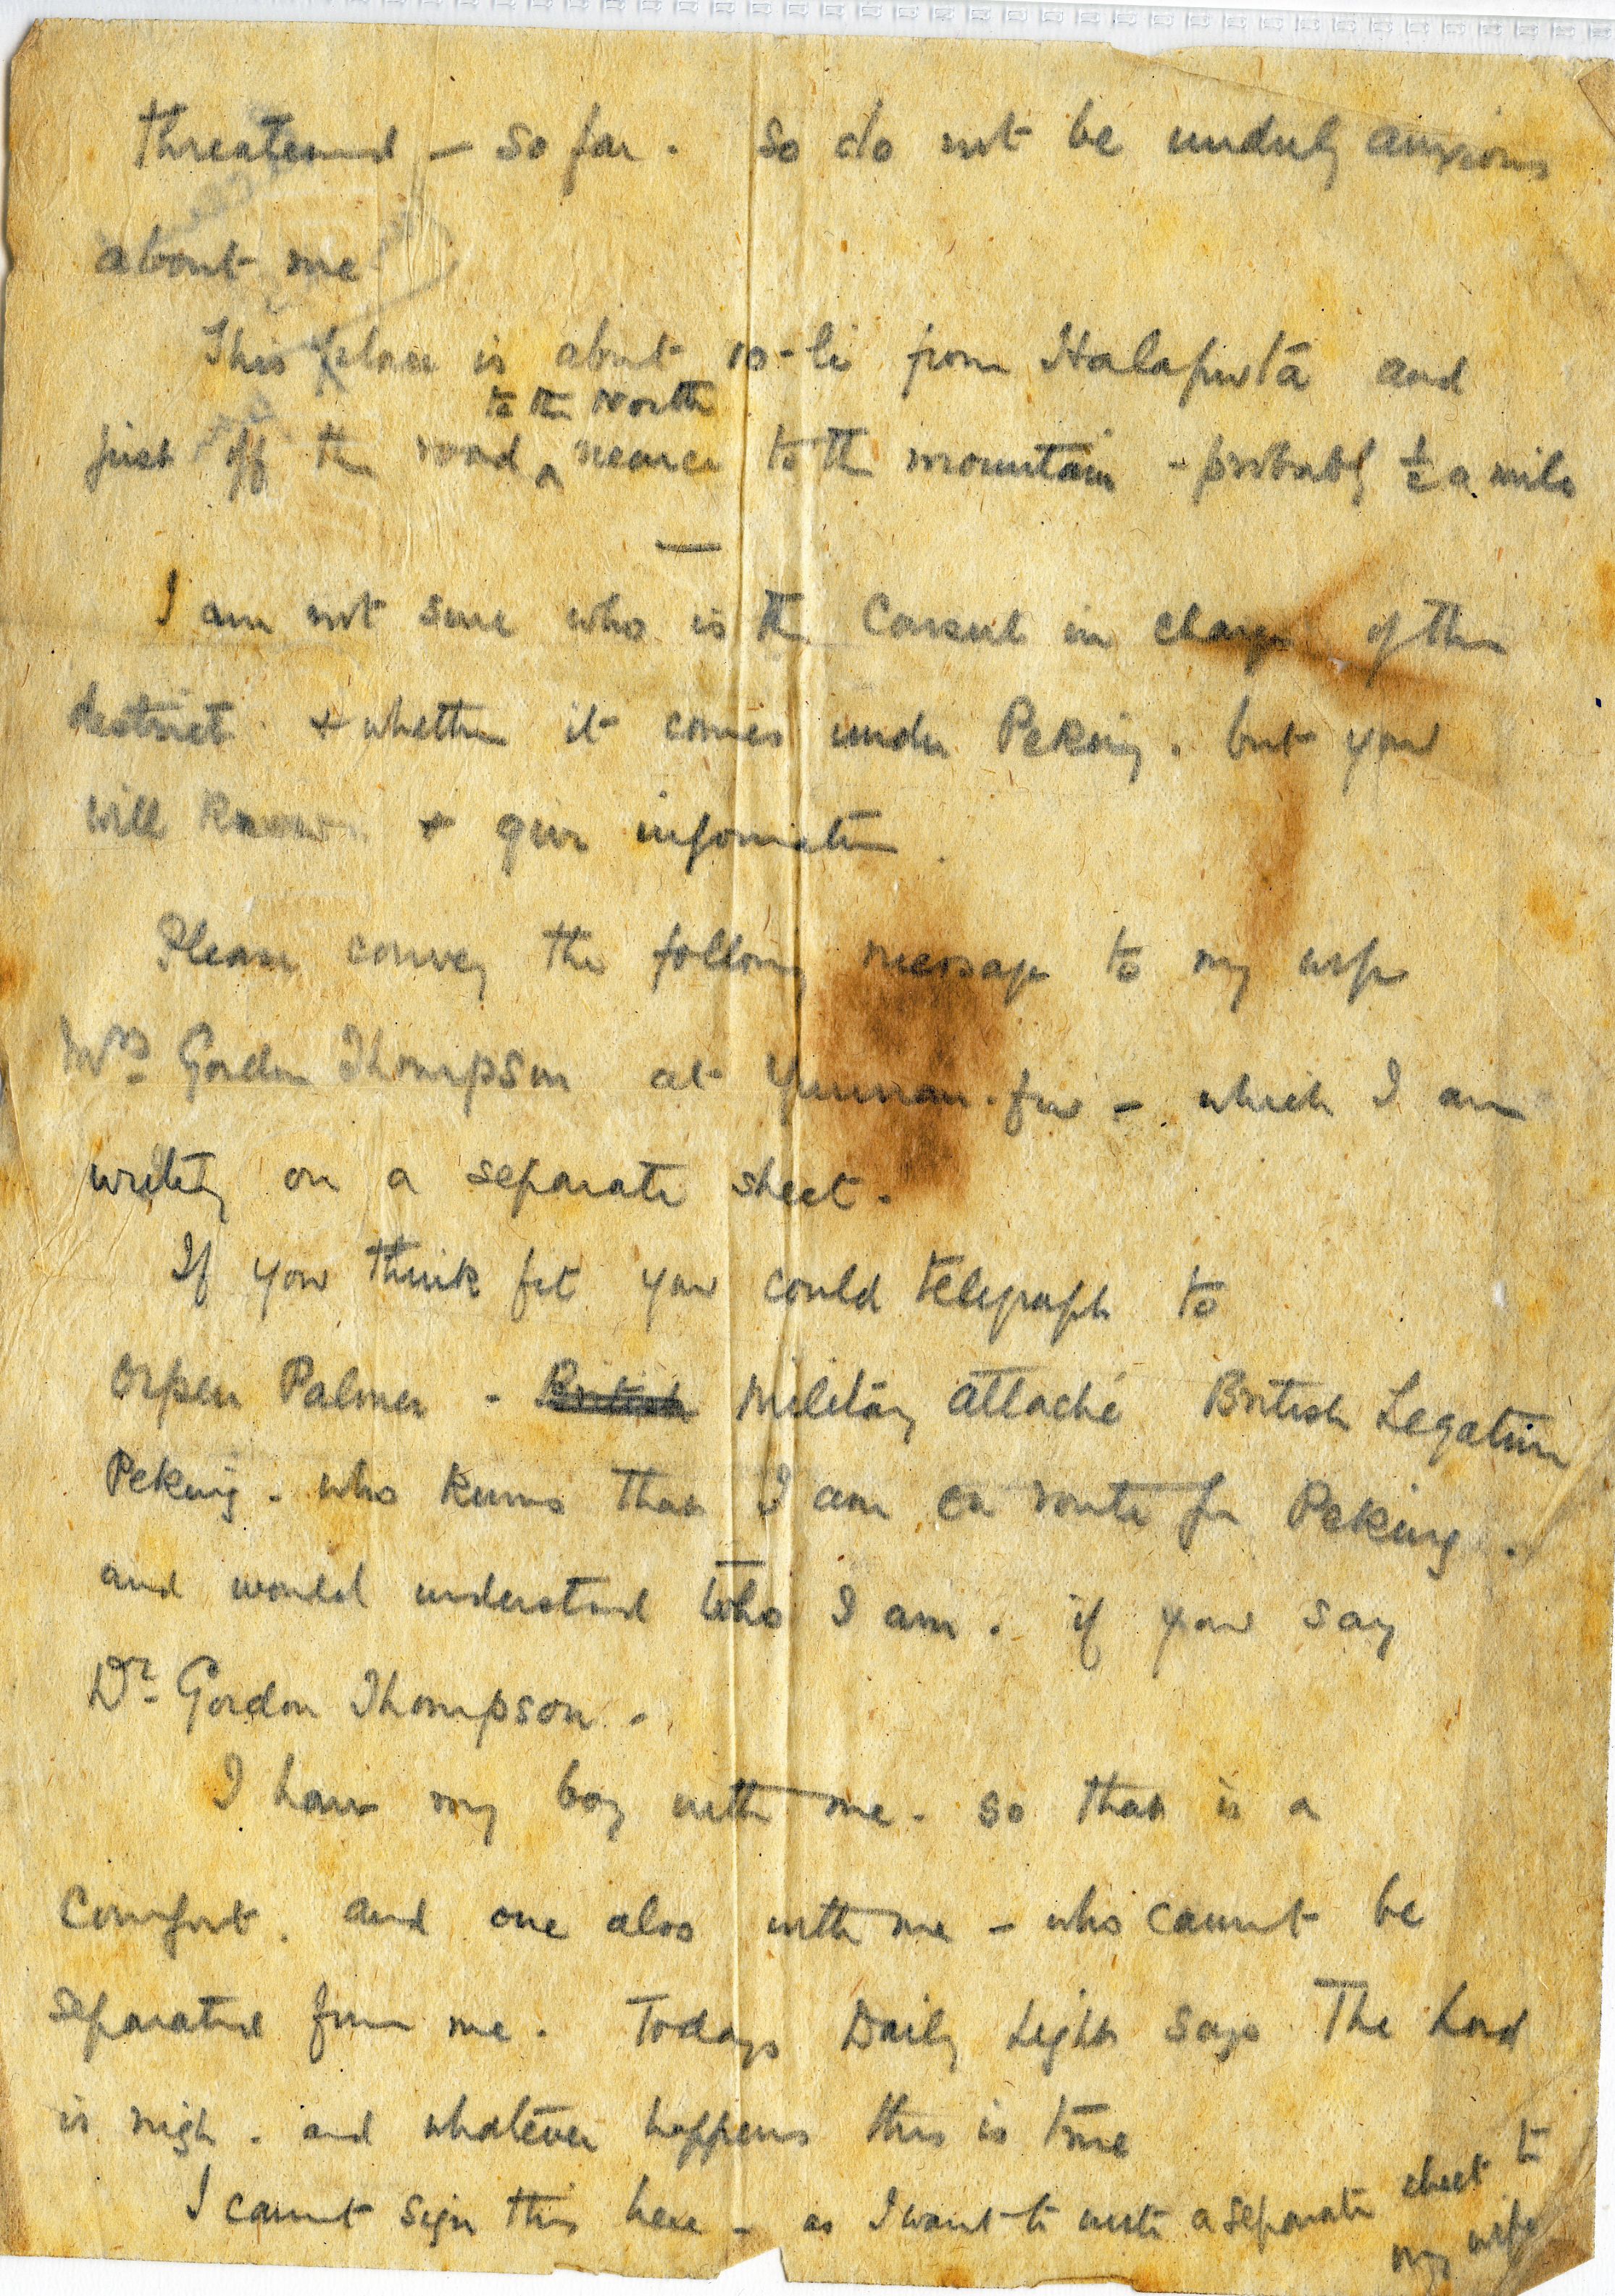 threatened – so far. So do not be unduly anxious
about me
This place is about 10-li from and
just off the road to the North nearer to the mountain - probably ½ a mile
—
I am not sure who is the Consul in charge of this
district + whether it comes under Peking. but you
will know + give information.
Please convey the following message to my wife
Mrs. Gordon Thompson at Yunnan-fu – which I am
writing on a separate sheet.
If you think fit you could telegraph to
Orpen Palmer - British Military attaché British Legation
Peking. who knows that I am en route for Peking.
and would understand who I am. if you say
Dr. Gordon Thompson.
I have my boy with me. so that is a
Comfort. and one also with me – who cannot be
separated from me. Todays Daily Light says The Lord
is nigh. and whatever happens this is true
I cannot sign this here – as I want to write a separate sheet to
my wife